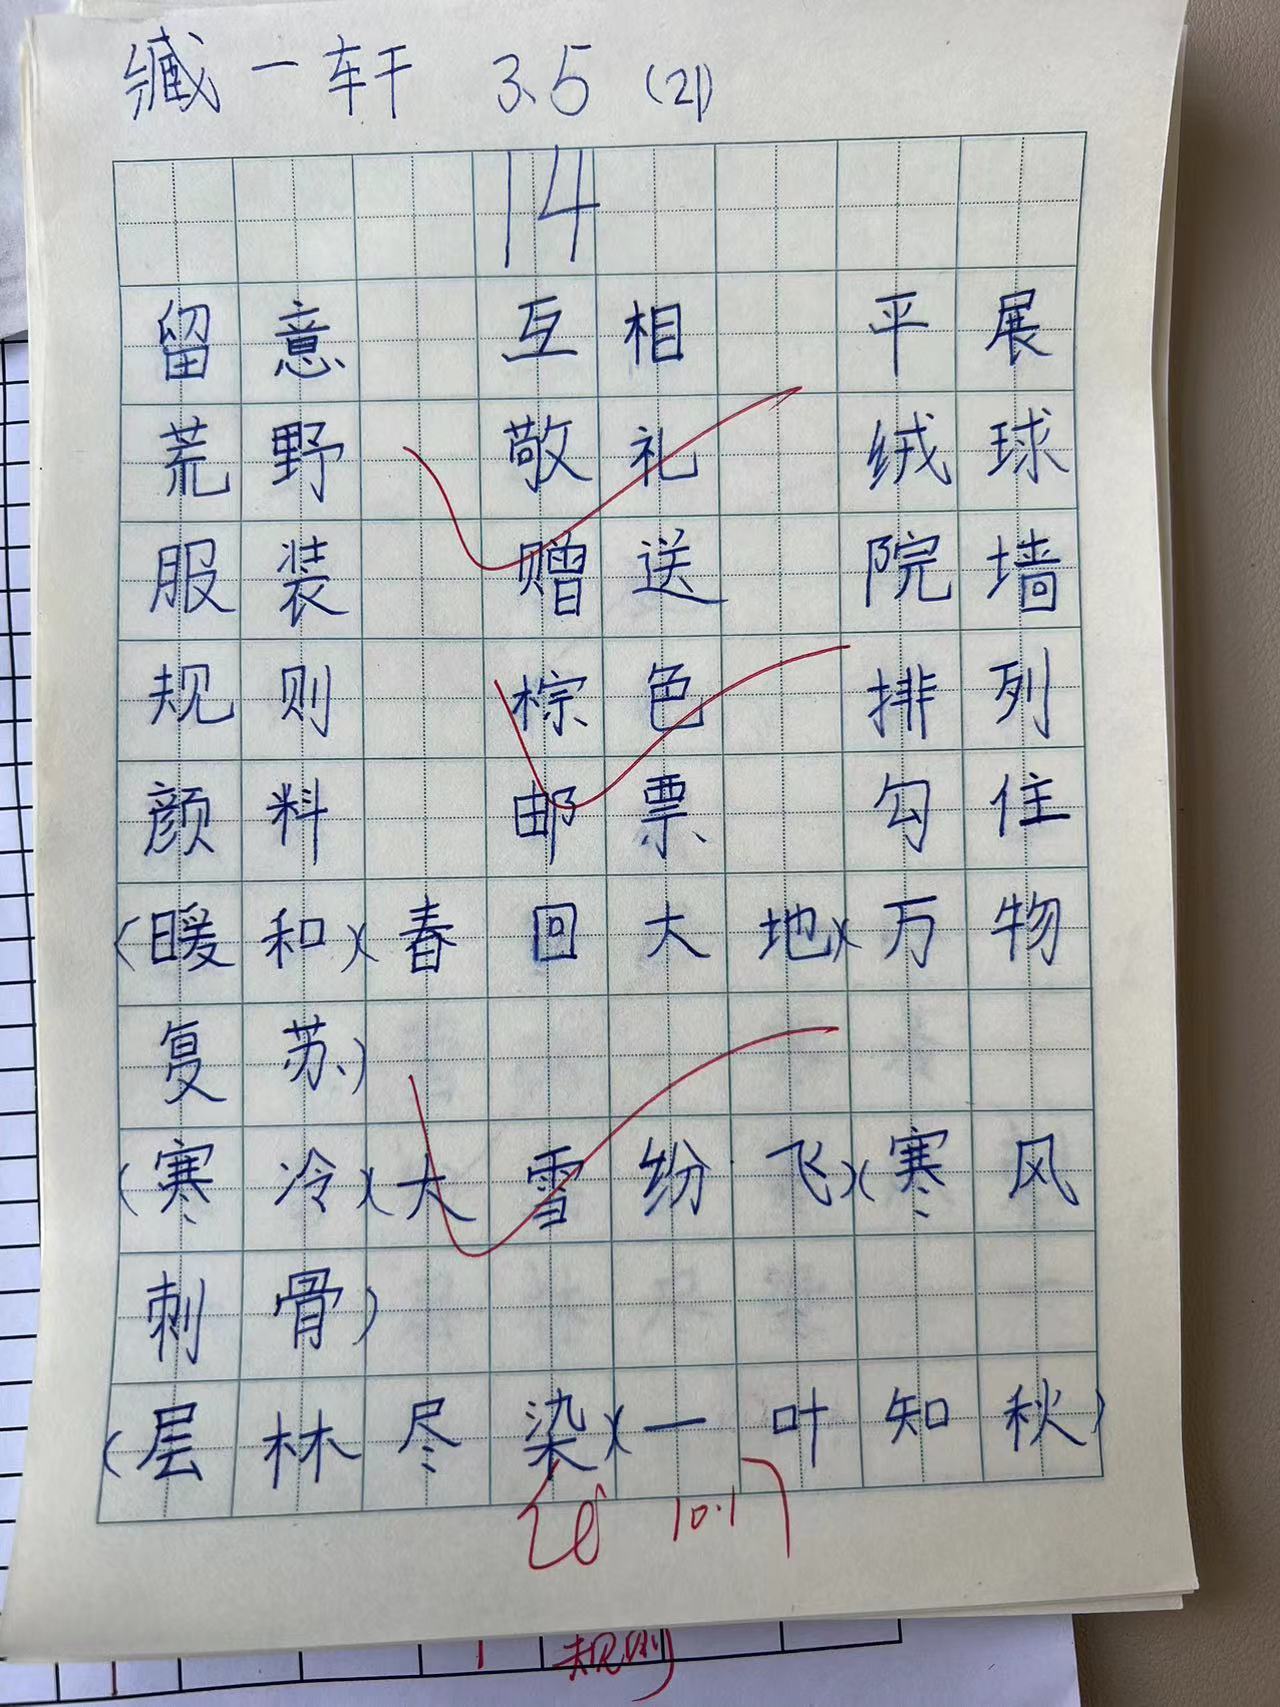 臧一轩 3.5 (21)
14
留意 互相 平展
荒野 敬礼 绒球
服装 赠送 院墙
规则 棕色 排列
颜料 邮票 勾住
(暖和)(春回大地)(万物
复苏)
(寒冷)(大雪纷飞)(寒风
刺骨)
(层林尽染)(一叶知秋)
10.17
规则